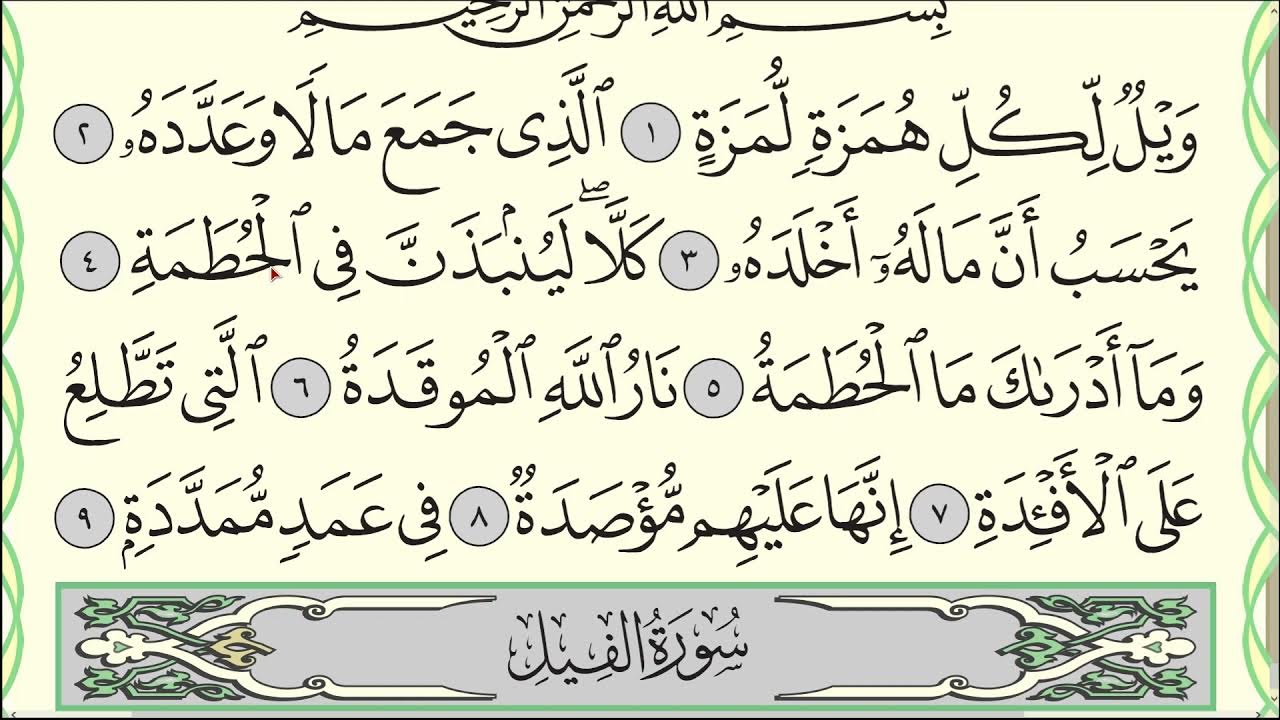 بِسْمِ ٱللَّهِ ٱلرَّحْمَٰنِ ٱلرَّحِيمِ
وَيْلٌ لِّكُلِّ هُمَزَةٍ لُّمَزَةٍ ١ ٱلَّذِى جَمَعَ مَالًا وَعَدَّدَهُۥ ٢
يَحْسَبُ أَنَّ مَالَهُۥٓ أَخْلَدَهُۥ ٣ كَلَّا ۖ لَيُنۢبَذَنَّ فِى ٱلْحُطَمَةِ ٤
وَمَآ أَدْرَىٰكَ مَا ٱلْحُطَمَةُ ٥ نَارُ ٱللَّهِ ٱلْمُوقَدَةُ ٦ ٱلَّتِى تَطَّلِعُ
عَلَى ٱلْأَفْـِٔدَةِ ٧ إِنَّهَا عَلَيْهِم مُّؤْصَدَةٌ ٨ فِى عَمَدٍ مُّمَدَّدَةٍۭ ٩
سُورَةُ الفِيلِ